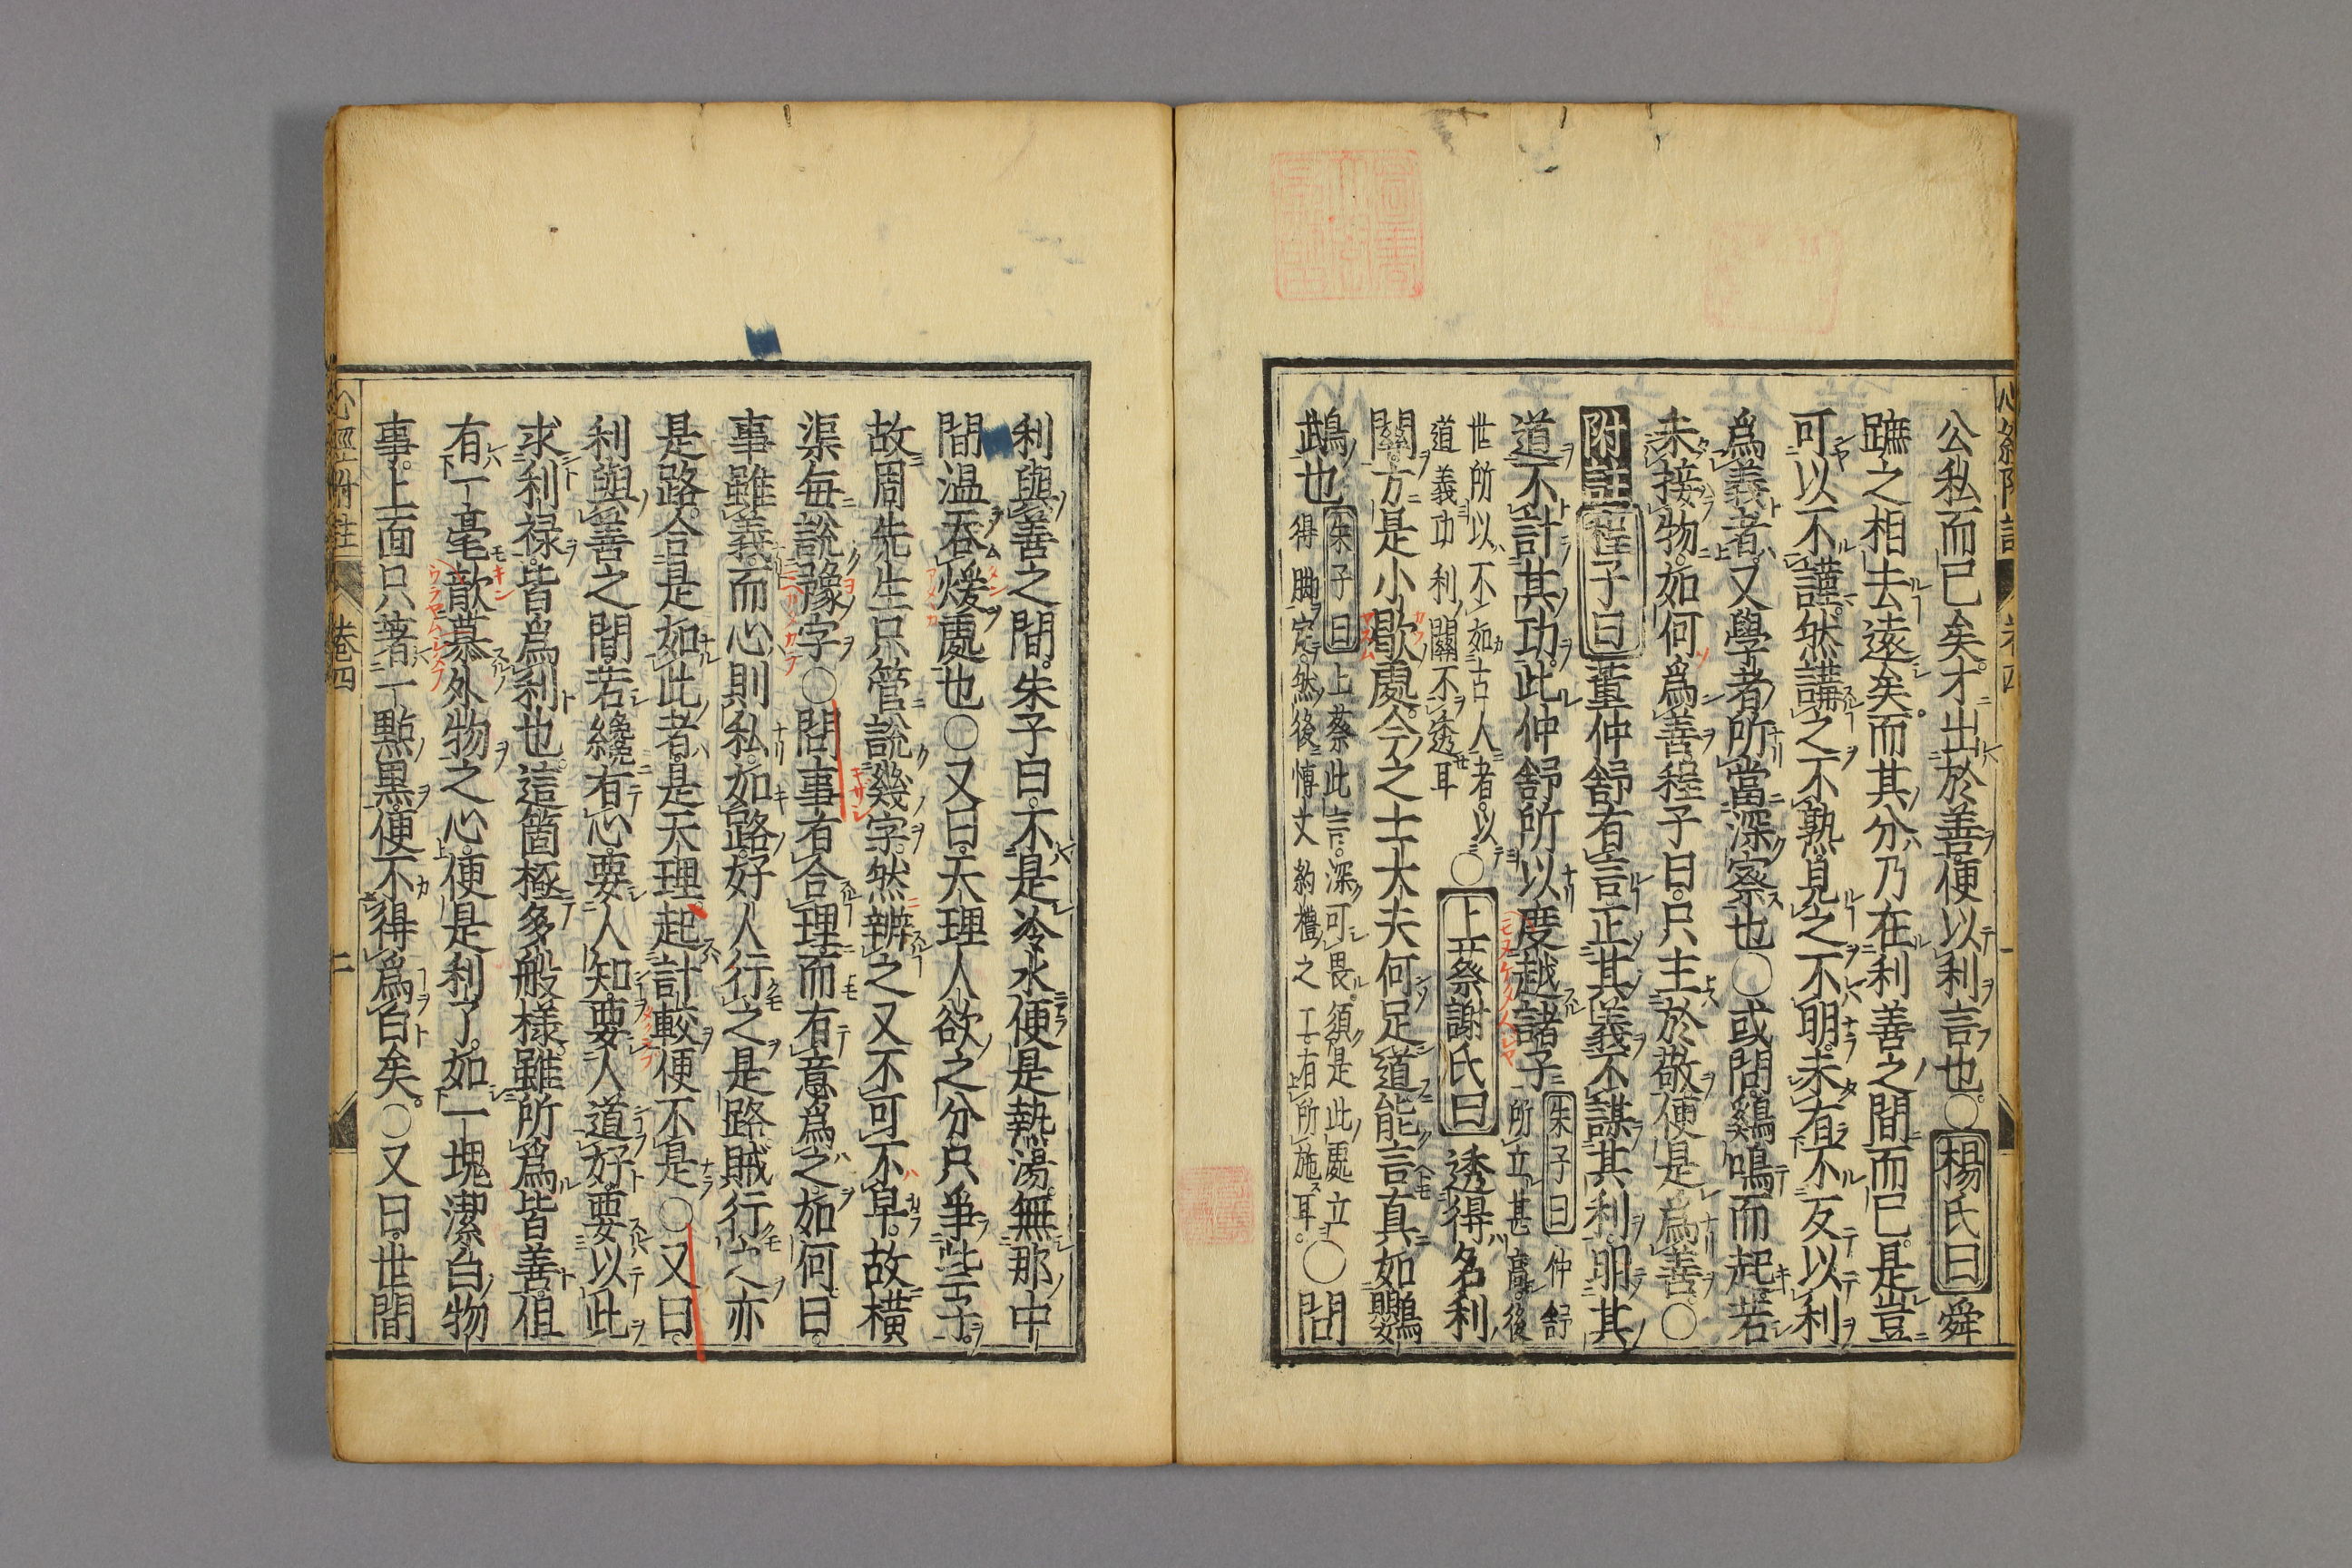 公私而已矣才出於善便以利言也○楊氏曰舜
蹠之相去遠矣而其分乃在利善之間而已是豈
可以不謹然講之不熟見之不明未有不反以利
爲義者又學者所當深察也○或問鷄鳴而起若
未接物如何爲善程子曰只主於敬便是爲善○
附註程子曰董仲舒有言正其義不謀其利明其
道不計其功此仲舒所以度越諸子朱子曰仲舒
所立甚高後
世所以不如古人者以
道義功利關不透耳
○上蔡謝氏曰透得名利
關方是小歇處今之士大夫何足道能言真如鸚
鵡也朱子曰上蔡此言深可畏須是此處立
得脚定然後博文約禮之工有所施耳
○問
利與善之間朱子曰不是冷水便是熱湯無那中
間溫吞煖處也○又曰天理人欲之分只爭些子
故周先生只管說幾字然辨之又不可不早故橫
渠每說豫字○問事有合理而有意爲之如何曰
事雖義而心則私如路好人行之是路賊行之亦
是路合是如此者是天理起計較便不是○又曰
利與善之間若纔有心要人知要人道好要以此
求利禄皆爲利也這箇極多般樣雖所爲皆善但
有一毫歆慕外物之心便是利了如一塊潔白物
事上面只著一點黑便不得爲白矣○又曰世間
心經附註 卷四 二